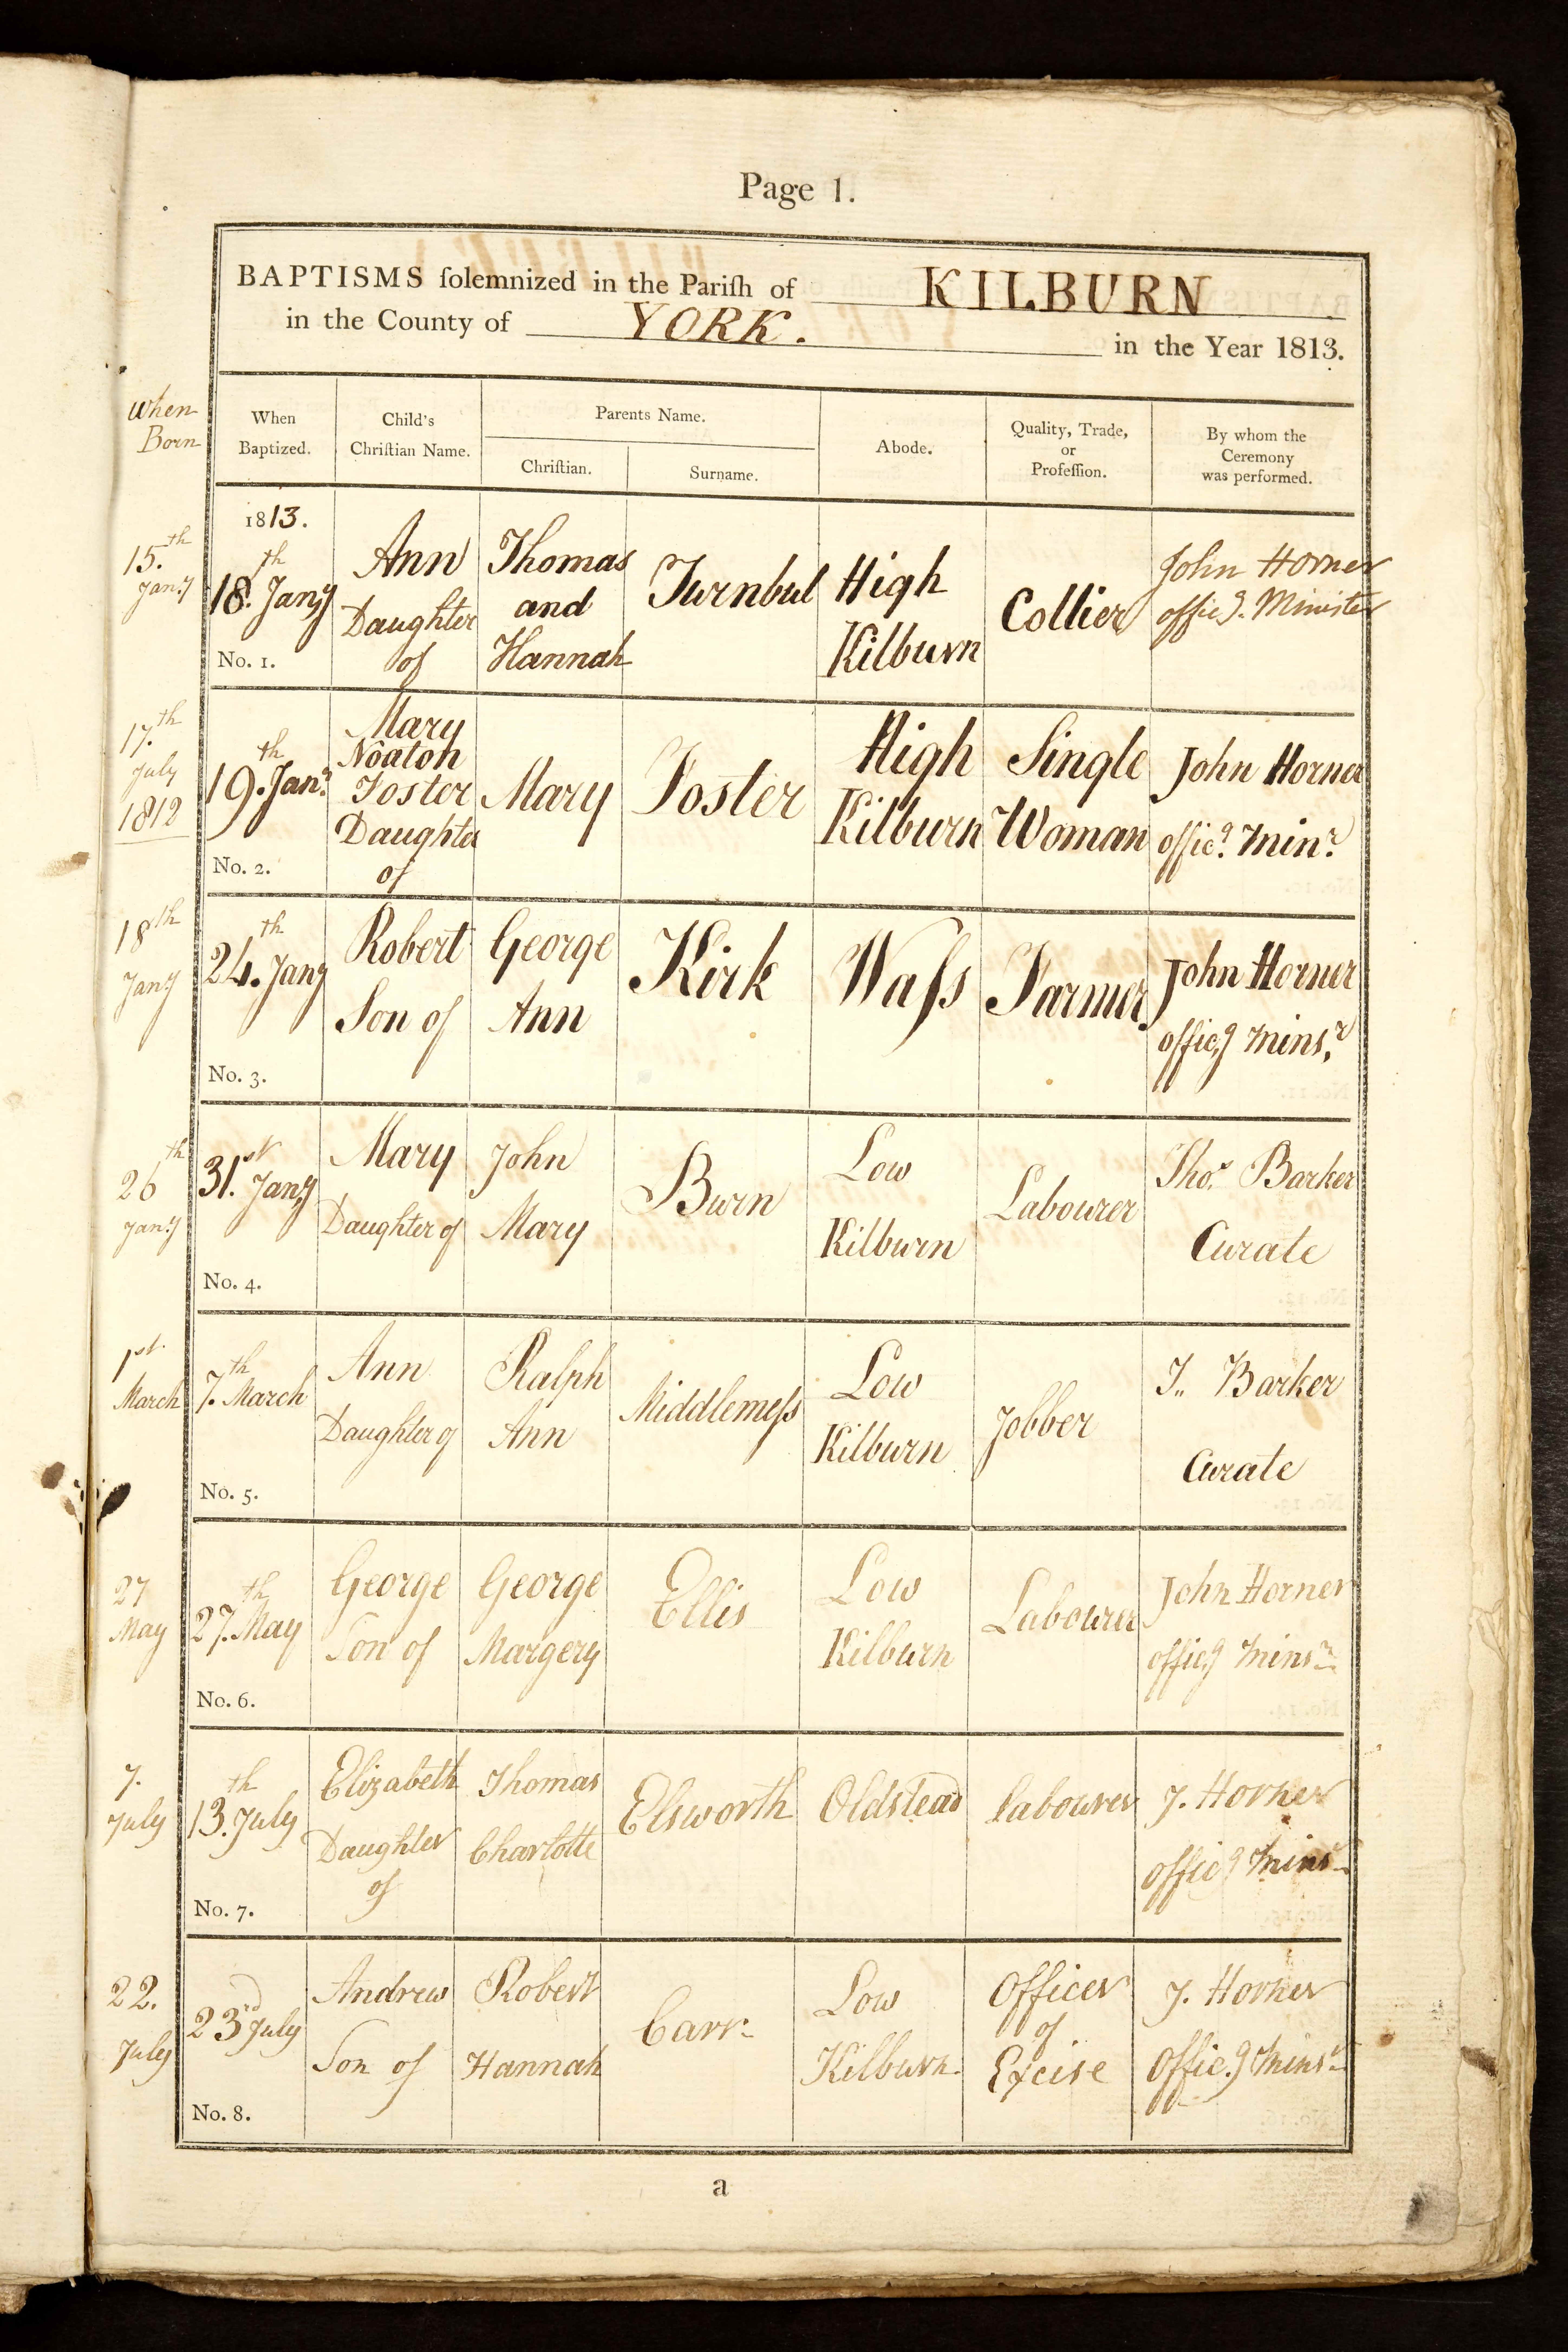 Page 1.
BAPTISMS ſolemnized in the Pariſh of KILBURN
in the County of YORK. in the Year 1813.
When
Born
When
Baptized.
Child's
Chriſtian Name.
Parents Name.
Chriſtian.
Surname.
Abode.
Quality, Trade,
or
Profeſſion.
By whom the
Ceremony
was performed.
15.th
Jany
1813.
18.th Jany
No. 1.
Ann
Daughter
of
Thomas
and
Hannah
Turnbul
High
Kilburn
Collier
John Horner
officg. Minister
17.th
July
1812
19.th Janr
No. 2.
Mary
Noaton
Foster
Daughter
of
Mary
Foster
High
Kilburn
Single
Woman
John Horner
officg. Minr
18th
Jany
24.th Jany
No. 3.
Robert
Son of
George
Ann
Kirk
Waſs
Farmer
John Horner
officg Minsr
26th
Jany
31.st Jany
No. 4.
Mary
Daughter of
John
Mary
Burn
Low
Kilburn
Labourer
Thos. Barker
Curate
1st
March
7.th March
No. 5.
Ann
Daughter of
Ralph
Ann
Middlemeſs
Low
Kilburn
Jobber
T. Barker
Curate
27
May
27.th May
No. 6.
George
Son of
George
Margery
Ellis
Low
Kilburn
Labourer
John Horner
officg Minsr
7.
July
13.th July
No. 7.
Elizabeth
Daughter
of
Thomas
Charlotte
Elsworth
Oldstead
labourer
J. Horner
officg Minsr
22.
July
23rd July
No. 8.
Andrew
Son of
Robert
Hannah
Carr
Low
Kilburn
Officer
of
Excise
J. Horner
Officg Minsr
a